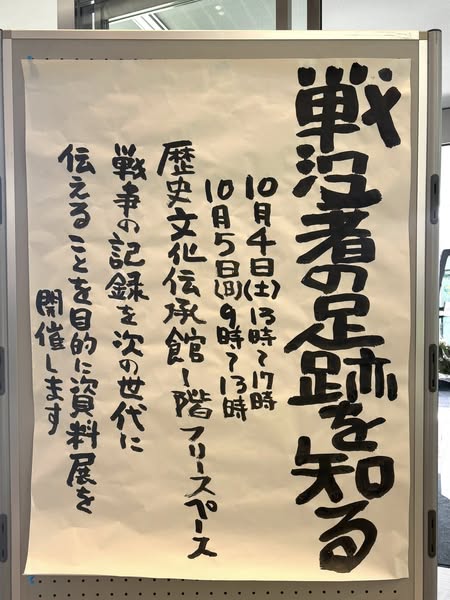 戦没者の足跡を知る
10月4日(土)13時〜17時
10月5日(日)9時〜13時
歴史文化伝承館1階フリースペース
戦争の記録を次の世代に
伝えることを目的に資料展を
開催します